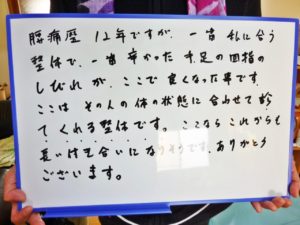 腰痛歴 12年ですが、一番私に合う
整体で、一番辛かった 手足の四指の
しびれが、ここで良くなった事です。
ここは その人の体の状態に合わせて診
てくれる整体です。ここなら これからも
長い付き合いになりそうです。ありがとう
ございます。